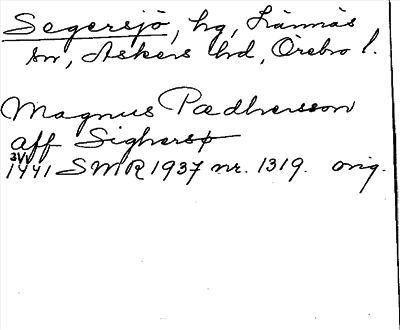 Segersjö, hg, Lännäs
sn, Askers hd, Örebro l.
Magnus Pædhersson
aff Sighersø
31/1
1441 SMR 1937 nr. 1319. orig.